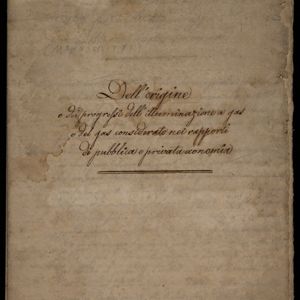 Dell'origine
e dei progressi dell'illuminazione a gas
e del gas considerato nei rapporti
di pubblica e privata economia